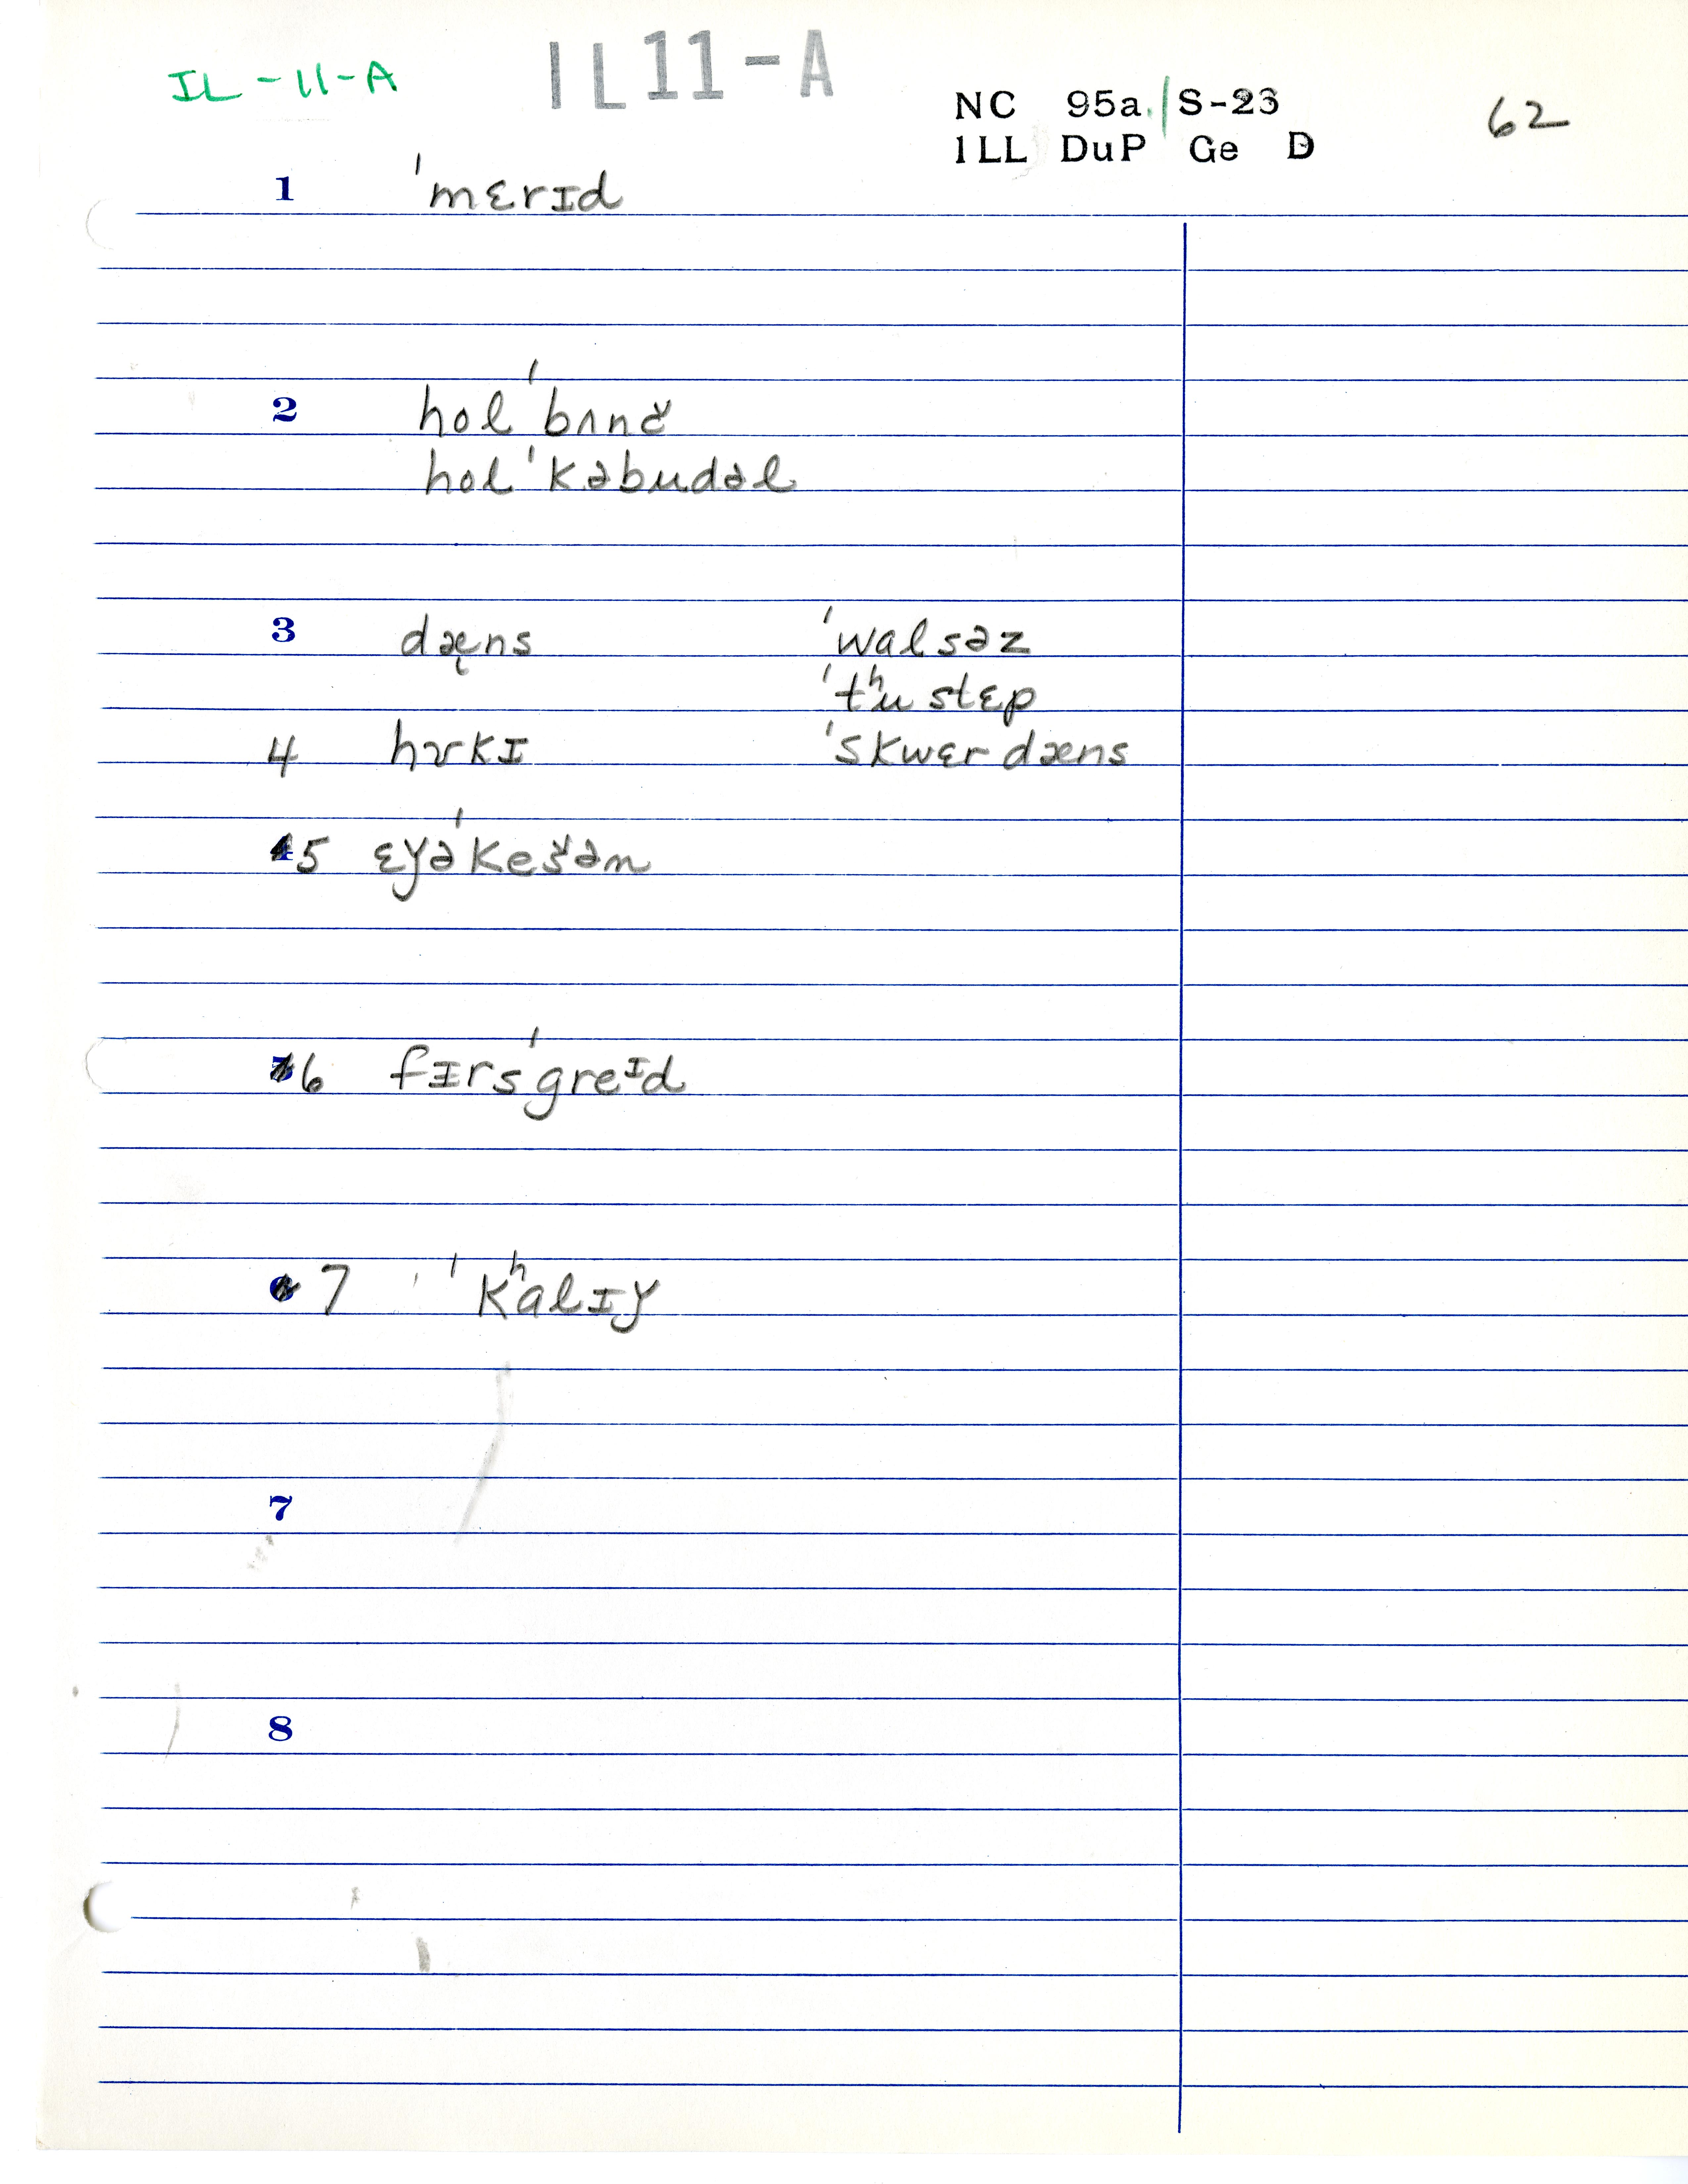 IL-11-A IL11-A
NC 95a./S-23 62
ILL DuP Ge D
1 ˈmɛrɪd
2 hol ˈbʌnč
hol ˈkəbudəl
3 dæ̨ns ˈwalsəz
ˈtʰu stɛp
4 hʊkɪ ˈskwɛr dæns
5 ɛɣəˈkešən
6 fɪrsˈgreᶦd
7 ˈkʰalɪɣ
7
8